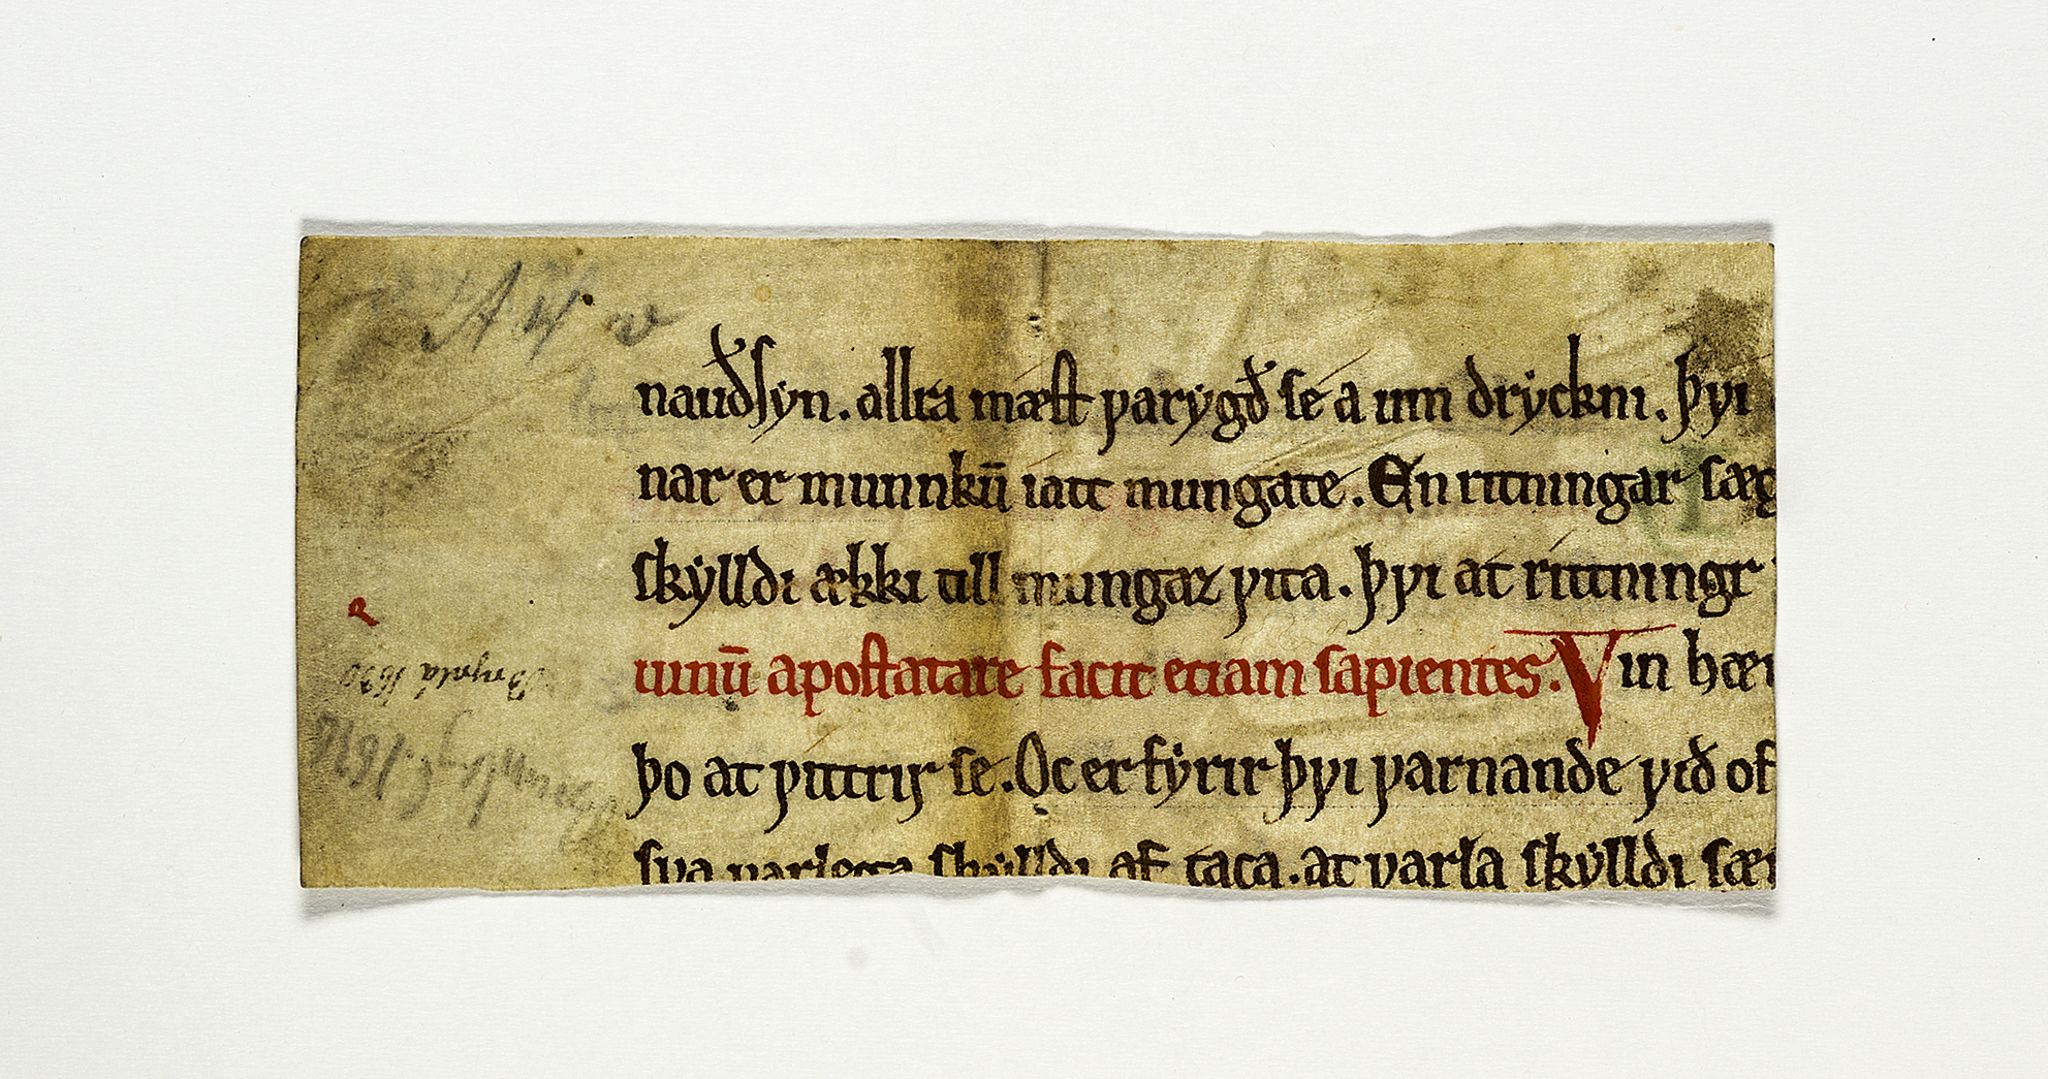 nauðsyn. allra mæst ꝩarygð se a um dryckni. þꝩi
nar er munnkū iatt mungate. En rittningar sæg
skylldi ækki till mungaz ꝩita. þꝩi at rittningr
uinū apostatare facit etiam sapientes. Vin hæi
þo at ꝩittrir se. Oc er fyrir þꝩi ꝩarnande ꝩið of
sꝩa ꝩarlega skylldi af taca. at ꝩarla skylldi sæi
1630
1610